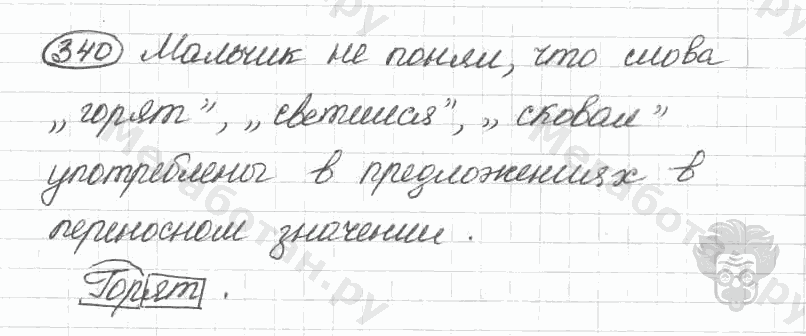 340 Мальчик не понял, что слова
„горят”, „светился”, „сковал”
употреблены в предложениях в
переносном значении.
Горят.
Мегаботан.ру